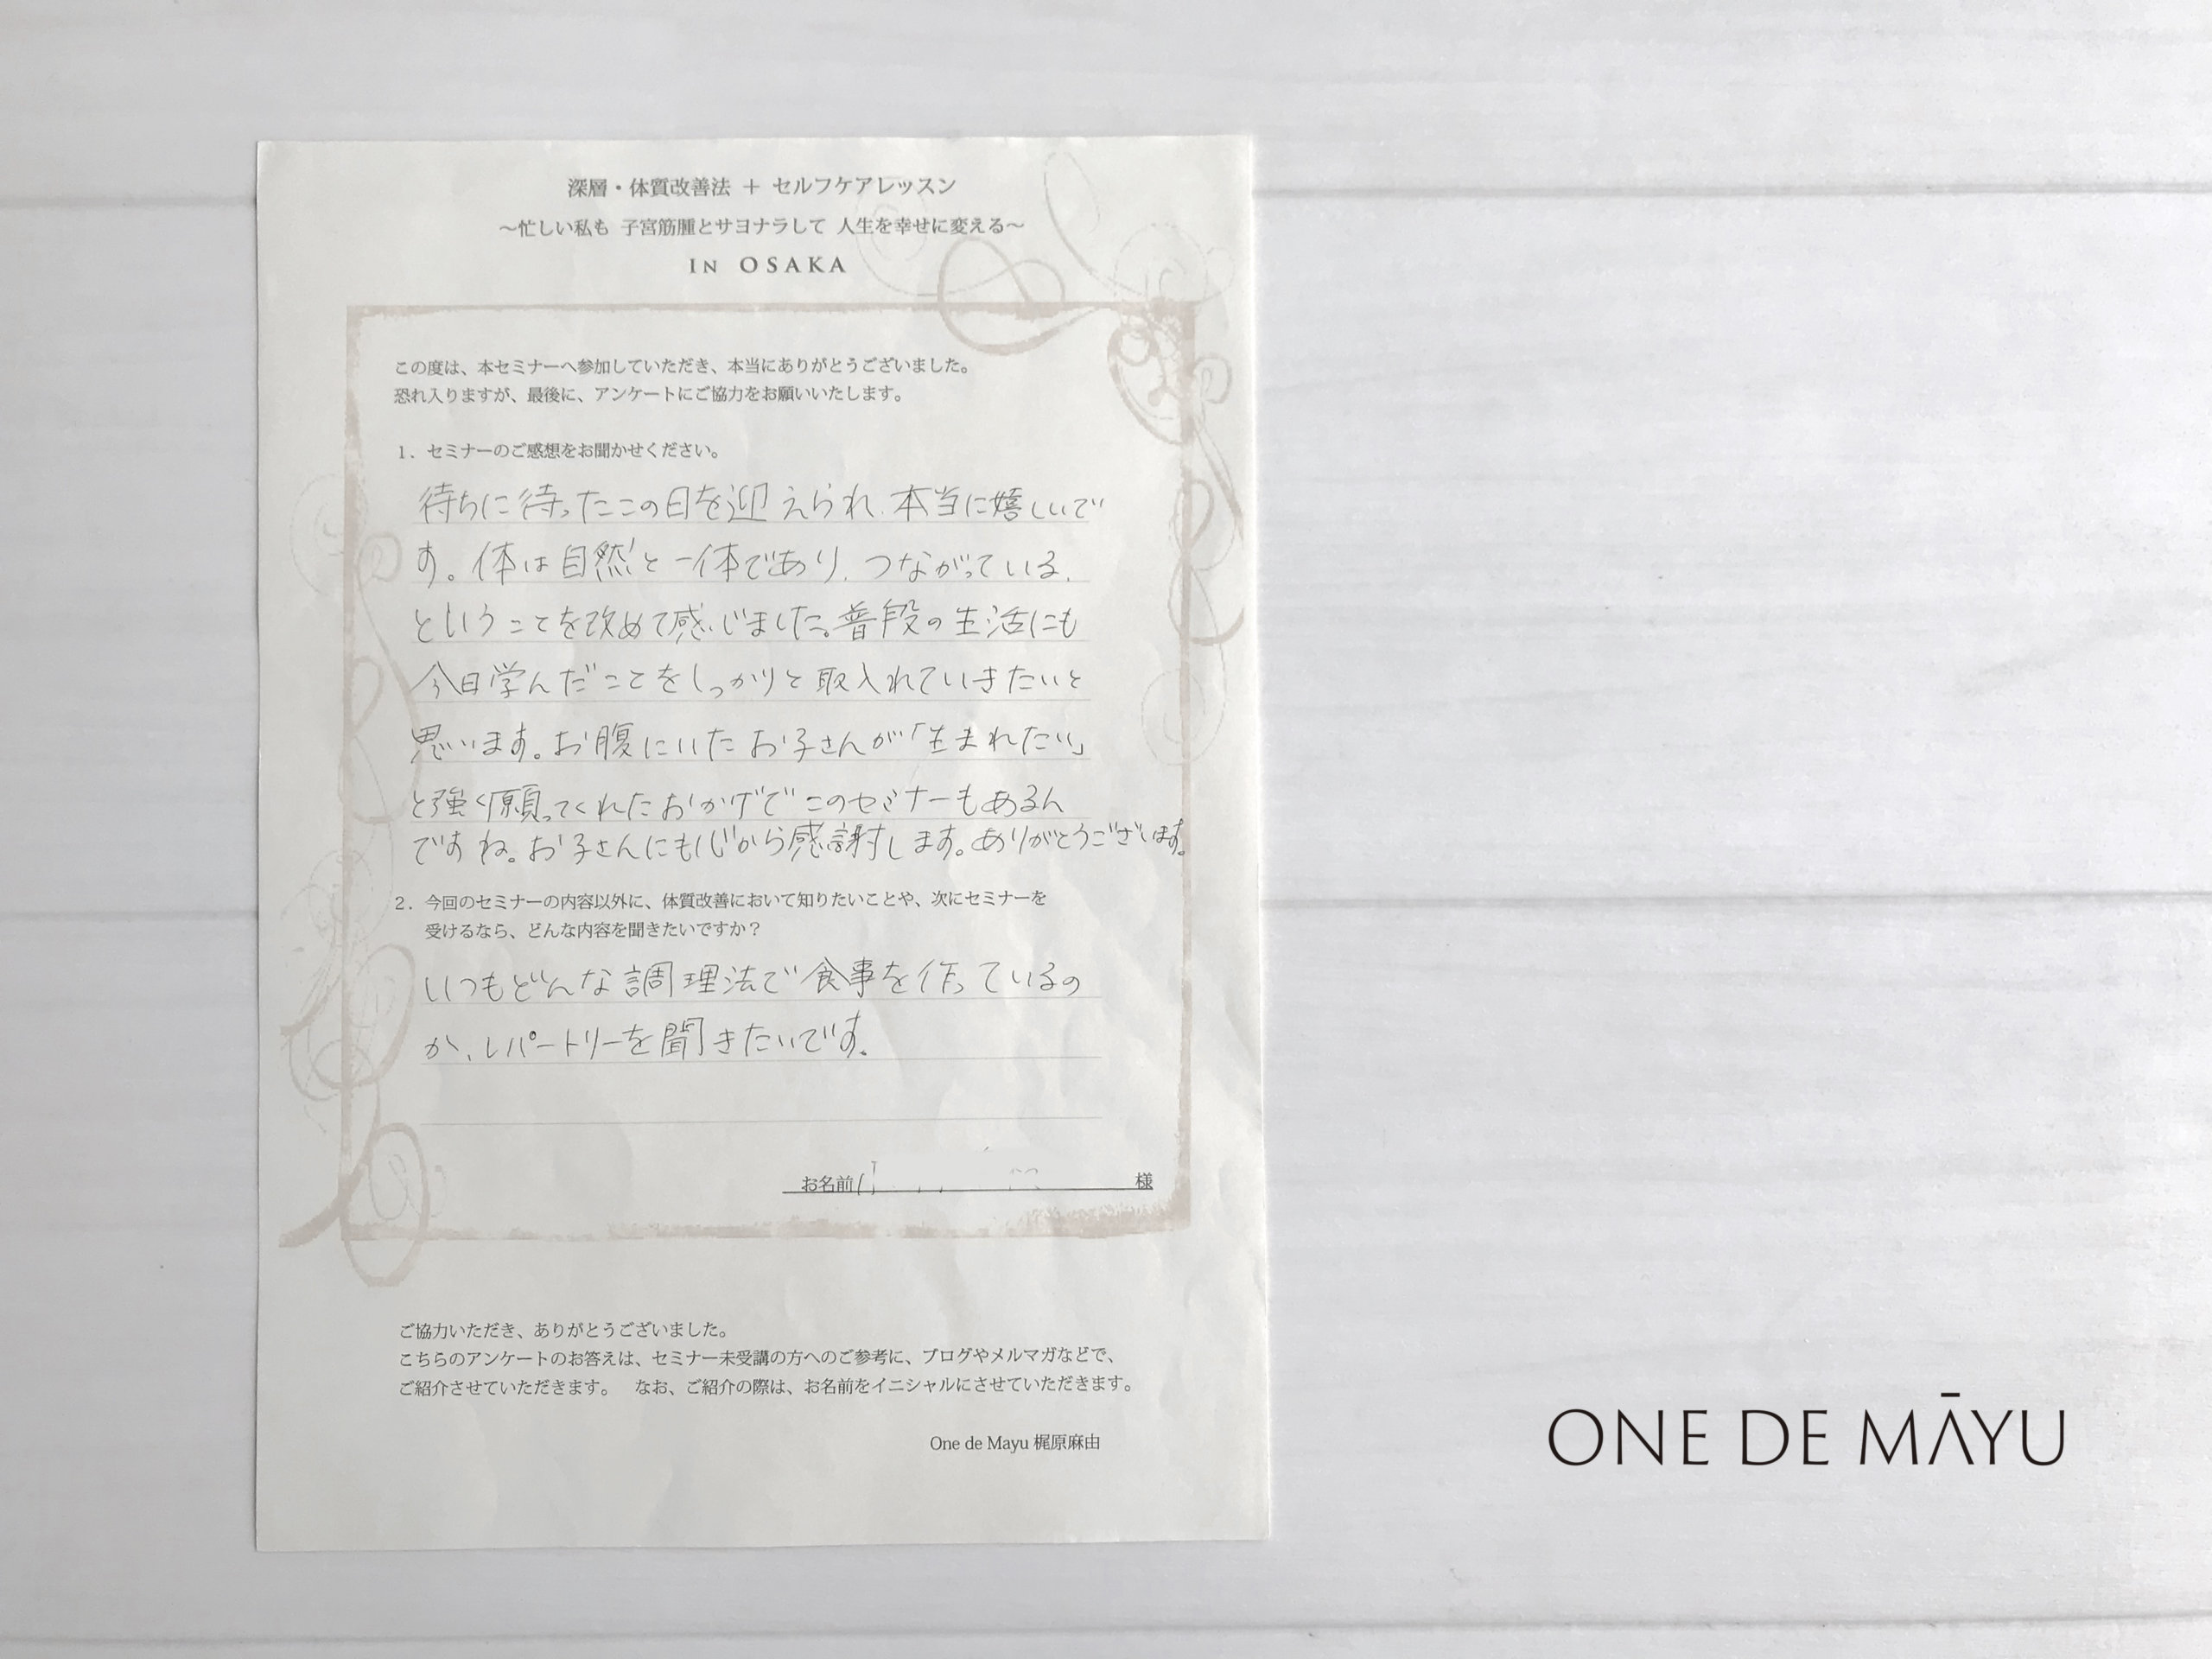 深層・体質改善法 ＋ セルフケアレッスン
～忙しい私も 子宮筋腫とサヨナラして 人生を幸せに変える～
IN OSAKA
この度は、本セミナーへ参加していただき、本当にありがとうございました。
恐れ入りますが、最後に、アンケートにご協力をお願いいたします。
1．セミナーのご感想をお聞かせください。
待ちに待ったこの日を迎えられ、本当に嬉しいで
す。体は自然と一体であり、つながっている、
ということを改めて感じました。普段の生活にも
今日学んだことをしっかりと取入れていきたいと
思います。お腹にいたお子さんが「生まれたい」
と強く願ってくれたおかげでこのセミナーもあるん
ですね。お子さんにも心から感謝します。ありがとうございます。
2．今回のセミナーの内容以外に、体質改善において知りたいことや、次にセミナーを
受けるなら、どんな内容を聞きたいですか？
いつもどんな調理法で食事を作っているの
か、レパートリーを聞きたいです。
お名前 様
ご協力いただき、ありがとうございました。
こちらのアンケートのお答えは、セミナー未受講の方へのご参考に、ブログやメルマガなどで、
ご紹介させていただきます。 なお、ご紹介の際は、お名前をイニシャルにさせていただきます。
One de Mayu 梶原麻由
ONE DE MĀYU